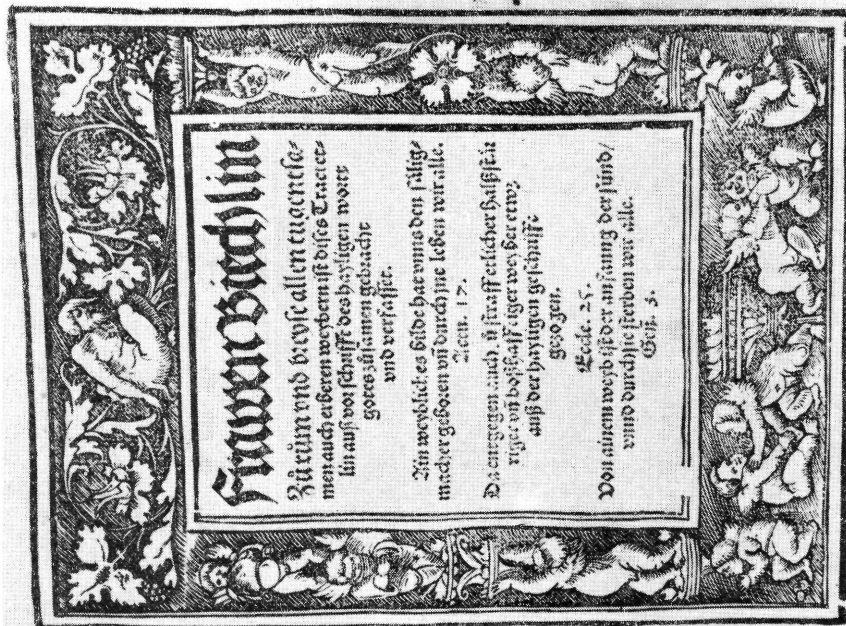 Frawen Biechlin
Zů rům vnd breyse allen tugentsa⸗
men auch erberen weybern ist dises Tractet⸗
lin auß vor schrifft des heyligen wort
gotes zůsamen gebracht
vnd verfasset.
Ain weyblich es bilde hat vnns den sälig⸗
macher geboren vñ durch jne leben wir alle.
17.
Da entgegen auch zů straff etlicher
vñ boßhafftiger weyber
auß der hayligen geschrifft
gezogen.
Eccle. 25.
Von ainem weyb ist der anfanng der sünd/
vnnd durch sie sterben wir alle.
3.